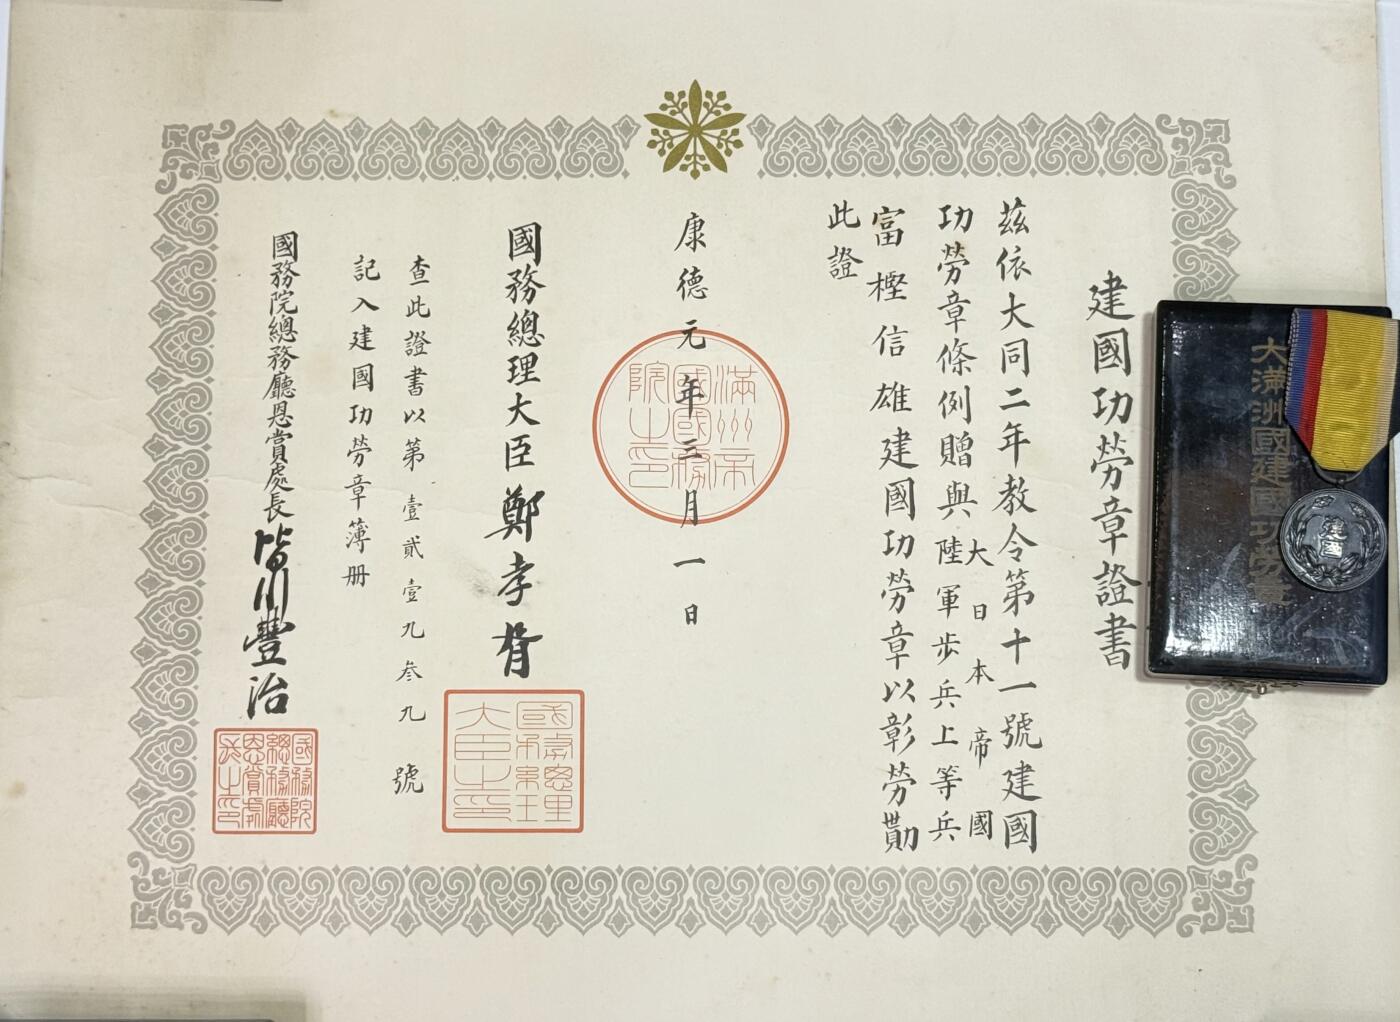 建國功勞章證書
茲依大同二年教令第十一號建國
功勞章條例贈與
大日本帝國
陸軍步兵上等兵
富樫信雄建國功勞章以彰勞勩
此證
康德元年三月一日
滿州帝國國務院之印
國務總理大臣鄭孝胥
國務總理大臣之印
查此證書以第壹貳壹九叁九號
記入建國功勞章簿冊
國務院總務廳恩賞處長皆川豐治
國務院總務廳恩賞處長之印
大滿洲國建國功勞章
建國